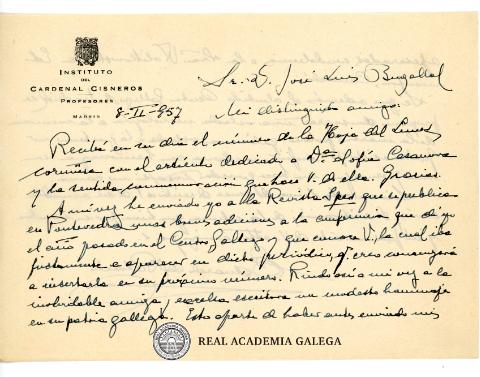 INSTITUTO
DEL
CARDENAL CISNEROS
PROFESORES
MADRID
8-II-957
Sr. D. José Luis Bugallal
Mi distinguido amigo:
Recibí en su día el número de la Hoja del Lunes
coruñesa con el artículo dedicado a Dª Sofía Casanova
y la sentida conmemoración que hace V. de ella. Gracias.
A mi vez he enviado yo a la Revista Spes que se publica
en Pontevedra unas breves adiciones a la conferencia que dí yo
el año pasado en el Centro Gallego y que conoce V., la cual iba
justamente a aparecer en dicho periódico, q. creo comenzará
a insertarla en su próximo número. Rindo así a mi vez a la
inolvidable amiga, excelsa escritora un modesto homenaje
en su patria gallega. Esto aparte de haber antes enviado mis
REAL ACADEMIA GALEGA